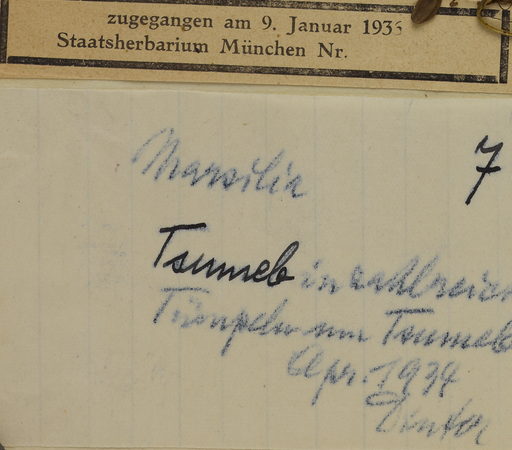 zugegangen am 9. Januar 1936
Staatsherbarium München Nr.
Marsilia
7
Tsumeb in zahlreich
Tümpeln um Tsumeb
Apr. 1934
Dinter